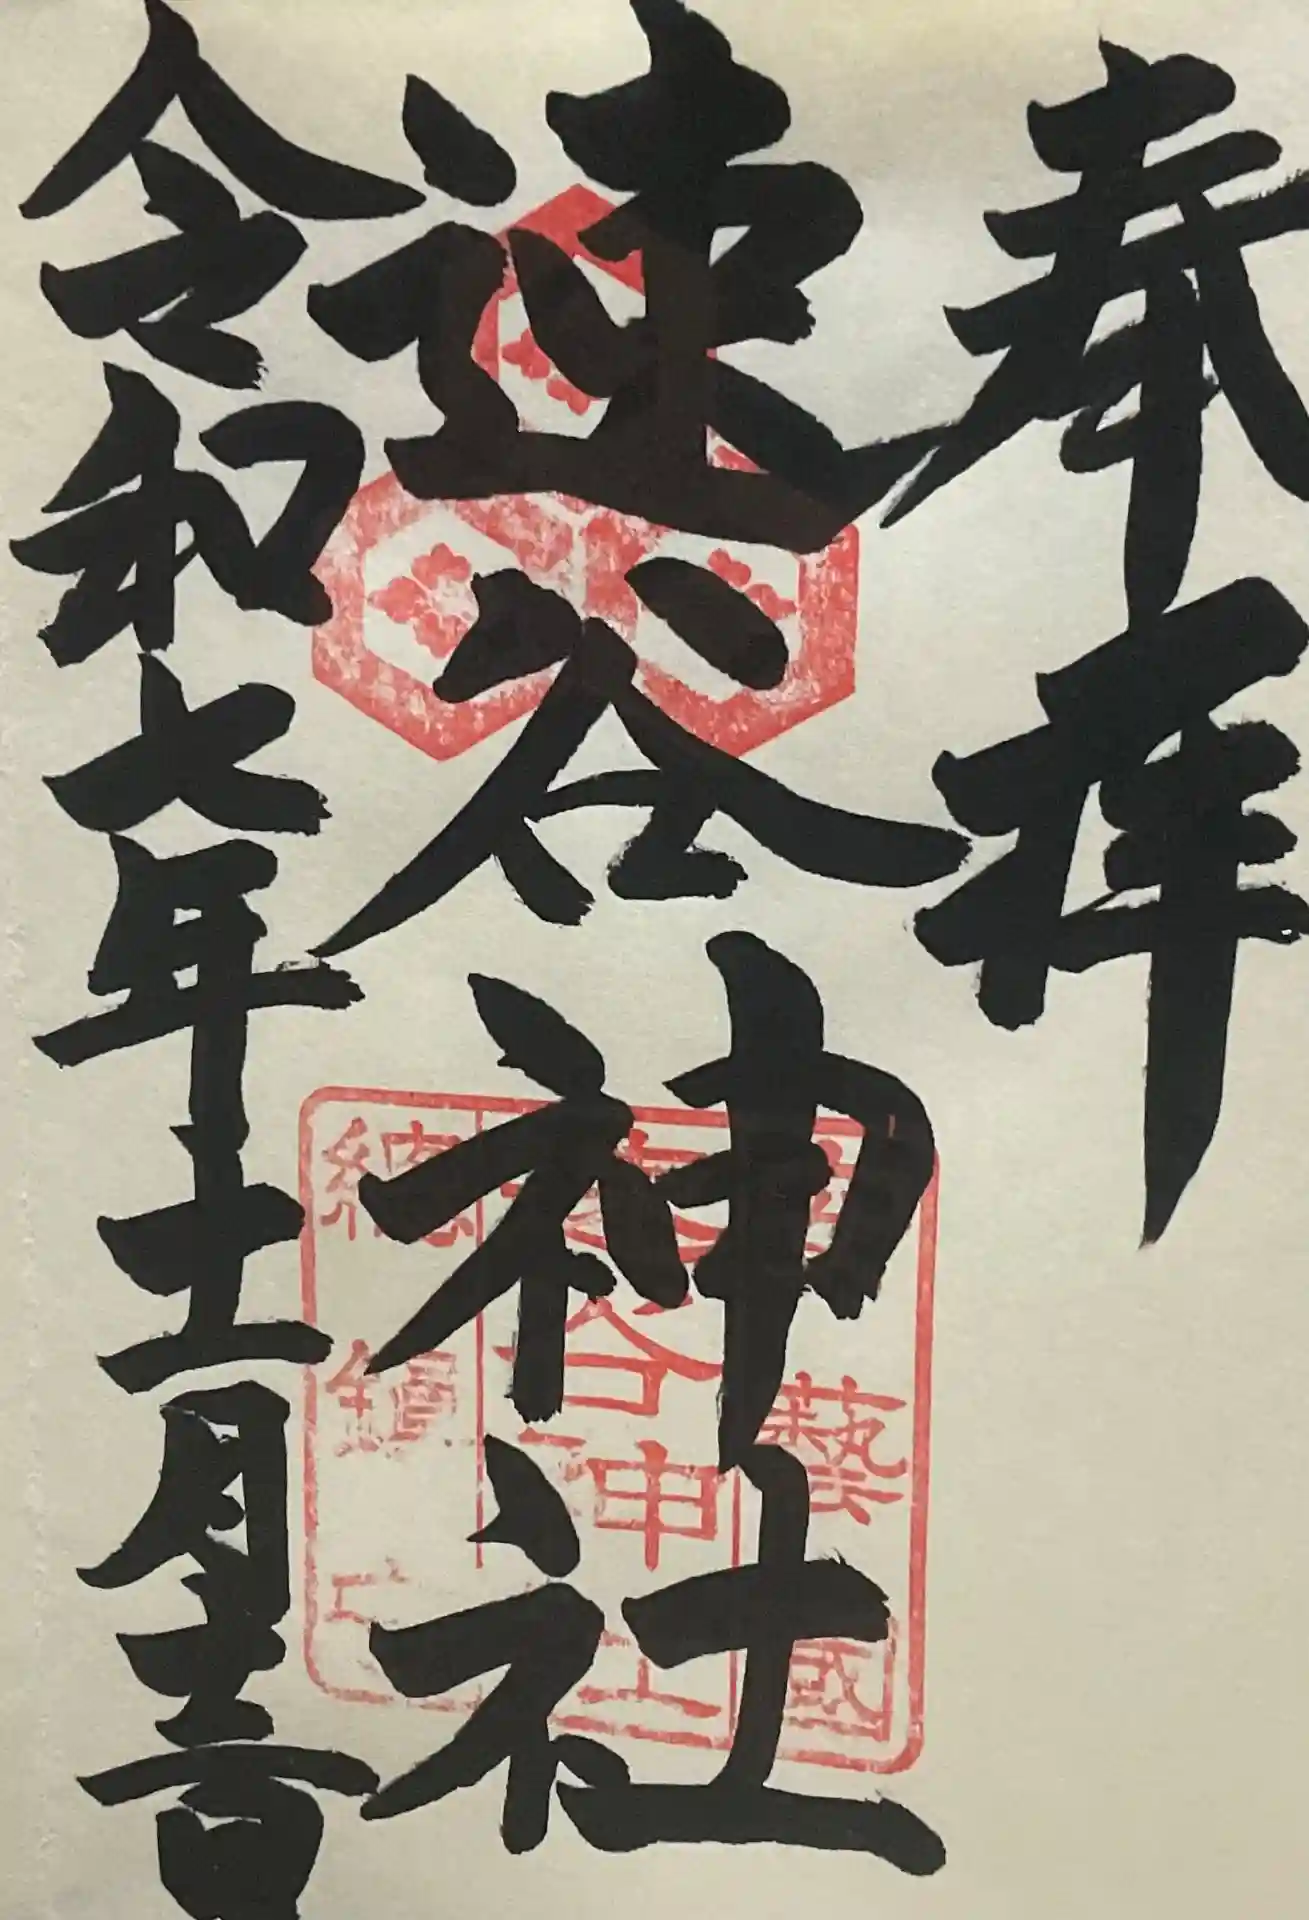 奉拝
速谷神社
令和七年十一月十三日
藝國
速谷神社
總鎮守